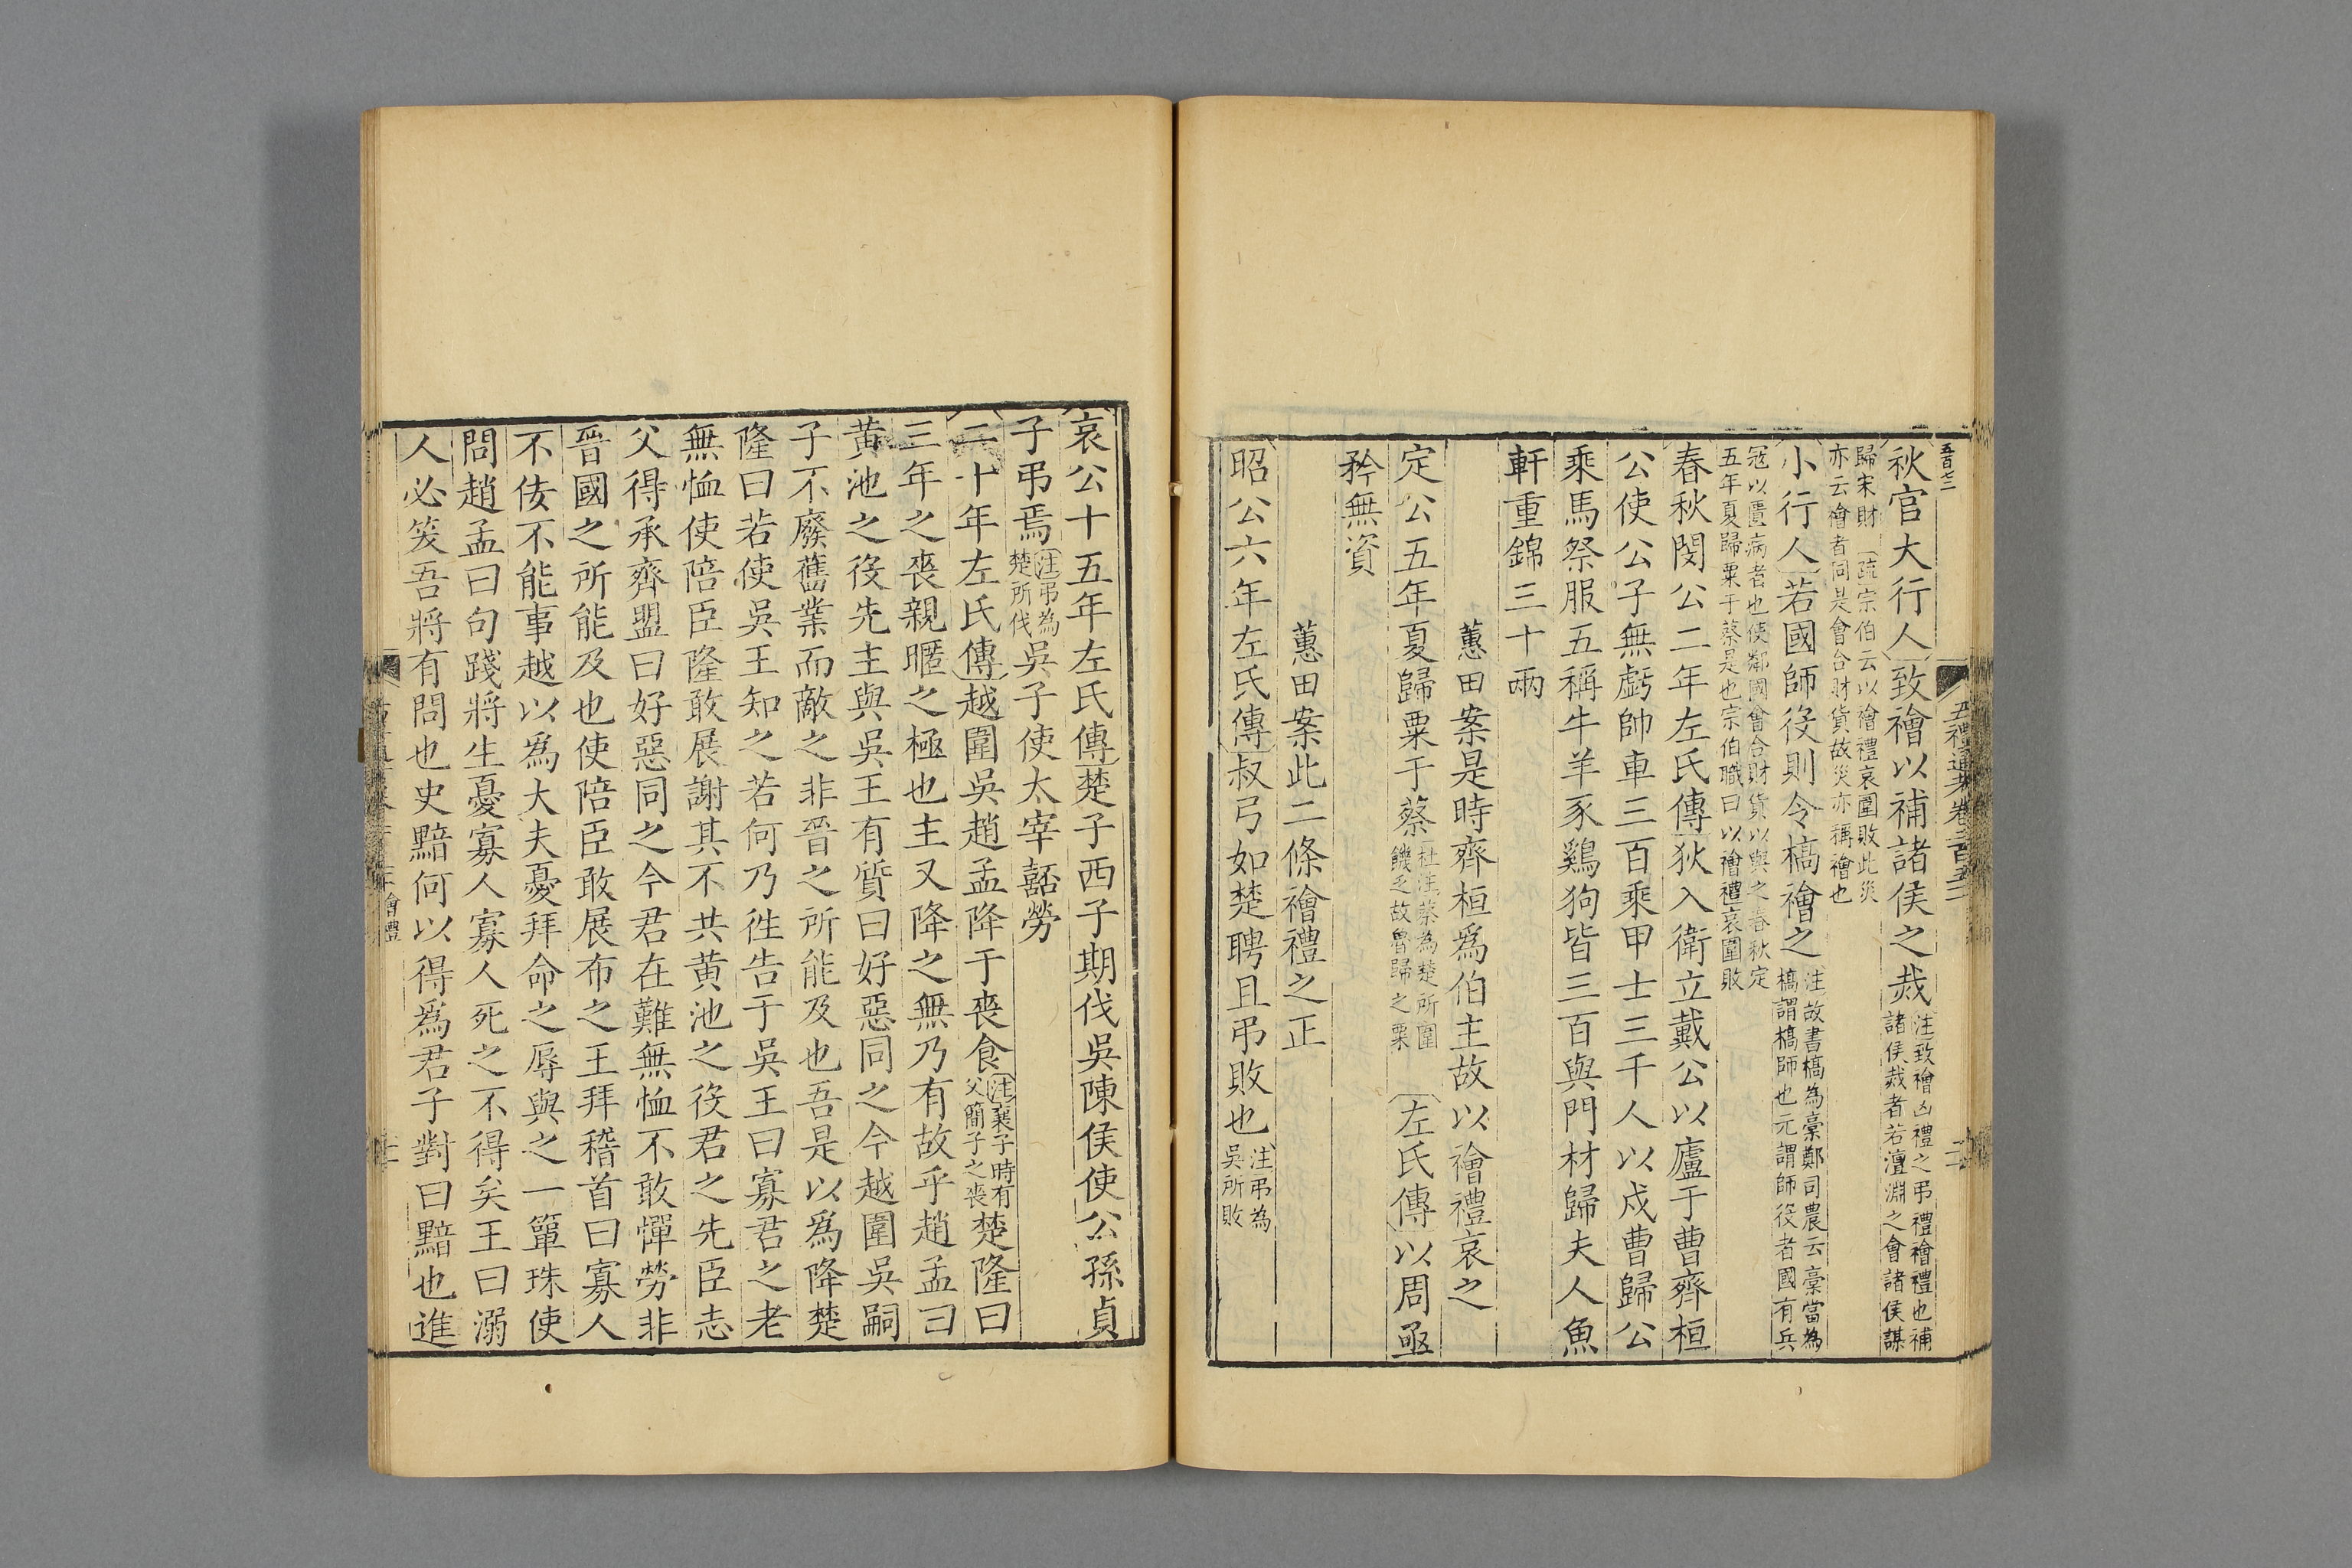 五百七二
五禮通考卷二百五二
秋官大行人致禬以補諸侯之烖注致禬凶禮之弔禮禬禮也補諸侯烖者若澶淵之會諸侯謀
歸宋財疏宗伯云以禬禮哀圍敗此災亦云禬者同是會合財貨故災亦稱禬也
小行人若國師役則令槁禬之注故書槁為槀鄭司農云槀當為槁謂槁師也元謂師役者國有兵
寇以匱病者也使鄰國會合財貨以與之春秋定五年夏歸粟于蔡是也宗伯職曰以禬禮哀圍敗
春秋閔公二年左氏傳狄入衛立戴公以廬于曹齊桓
公使公子無虧帥車三百乘甲士三千人以戍曹歸公
乘馬祭服五稱牛羊豕鷄狗皆三百與門材歸夫人魚
軒重錦三十兩
蕙田案是時齊桓爲伯主故以禬禮哀之
定公五年夏歸粟于蔡杜注蔡為楚所圍饑乏故魯歸之粟左氏傳以周亟
矜無資
蕙田案此二條禬禮之正
昭公六年左氏傳叔弓如楚聘且弔敗也注弔為吳所敗
哀公十五年左氏傳楚子西子期伐吳陳侯使公孫貞
子弔焉注弔為楚所伐吳子使太宰嚭勞
二十年左氏傳越圍吳趙孟降于喪食注襄子時有父簡子之喪楚隆曰
三年之喪親暱之極也主又降之無乃有故乎趙孟曰
黃池之役先主與吳王有質曰好惡同之今越圍吳嗣
子不廢舊業而敵之非晉之所能及也吾是以爲降楚
隆曰若使吳王知之若何乃徃告于吳王曰寡君之老
無恤使陪臣隆敢展謝其不共黃池之役君之先臣志
父得承齊盟曰好惡同之今君在難無恤不敢憚勞非
晉國之所能及也使陪臣敢展布之王拜稽首曰寡人
不佞不能事越以爲大夫憂拜命之辱與之一簞珠使
問趙孟曰句踐將生憂寡人寡人死之不得矣王曰溺
人必笑吾將有問也史黯何以得爲君子對曰黯也進
禬禮